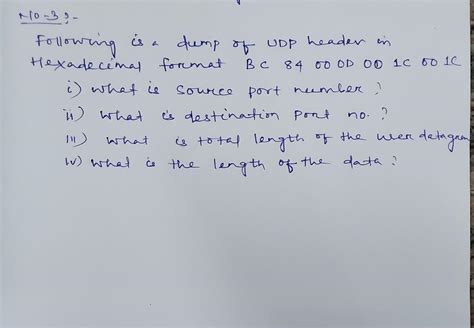 No-3:-
Following is a dump of UDP header in
Hexadecimal format BC 84 00 0D 00 1C 00 1C
i) what is Source port number?
ii) what is destination port no.?
iii) what is total length of the user datagram
iv) what is the length of the data?